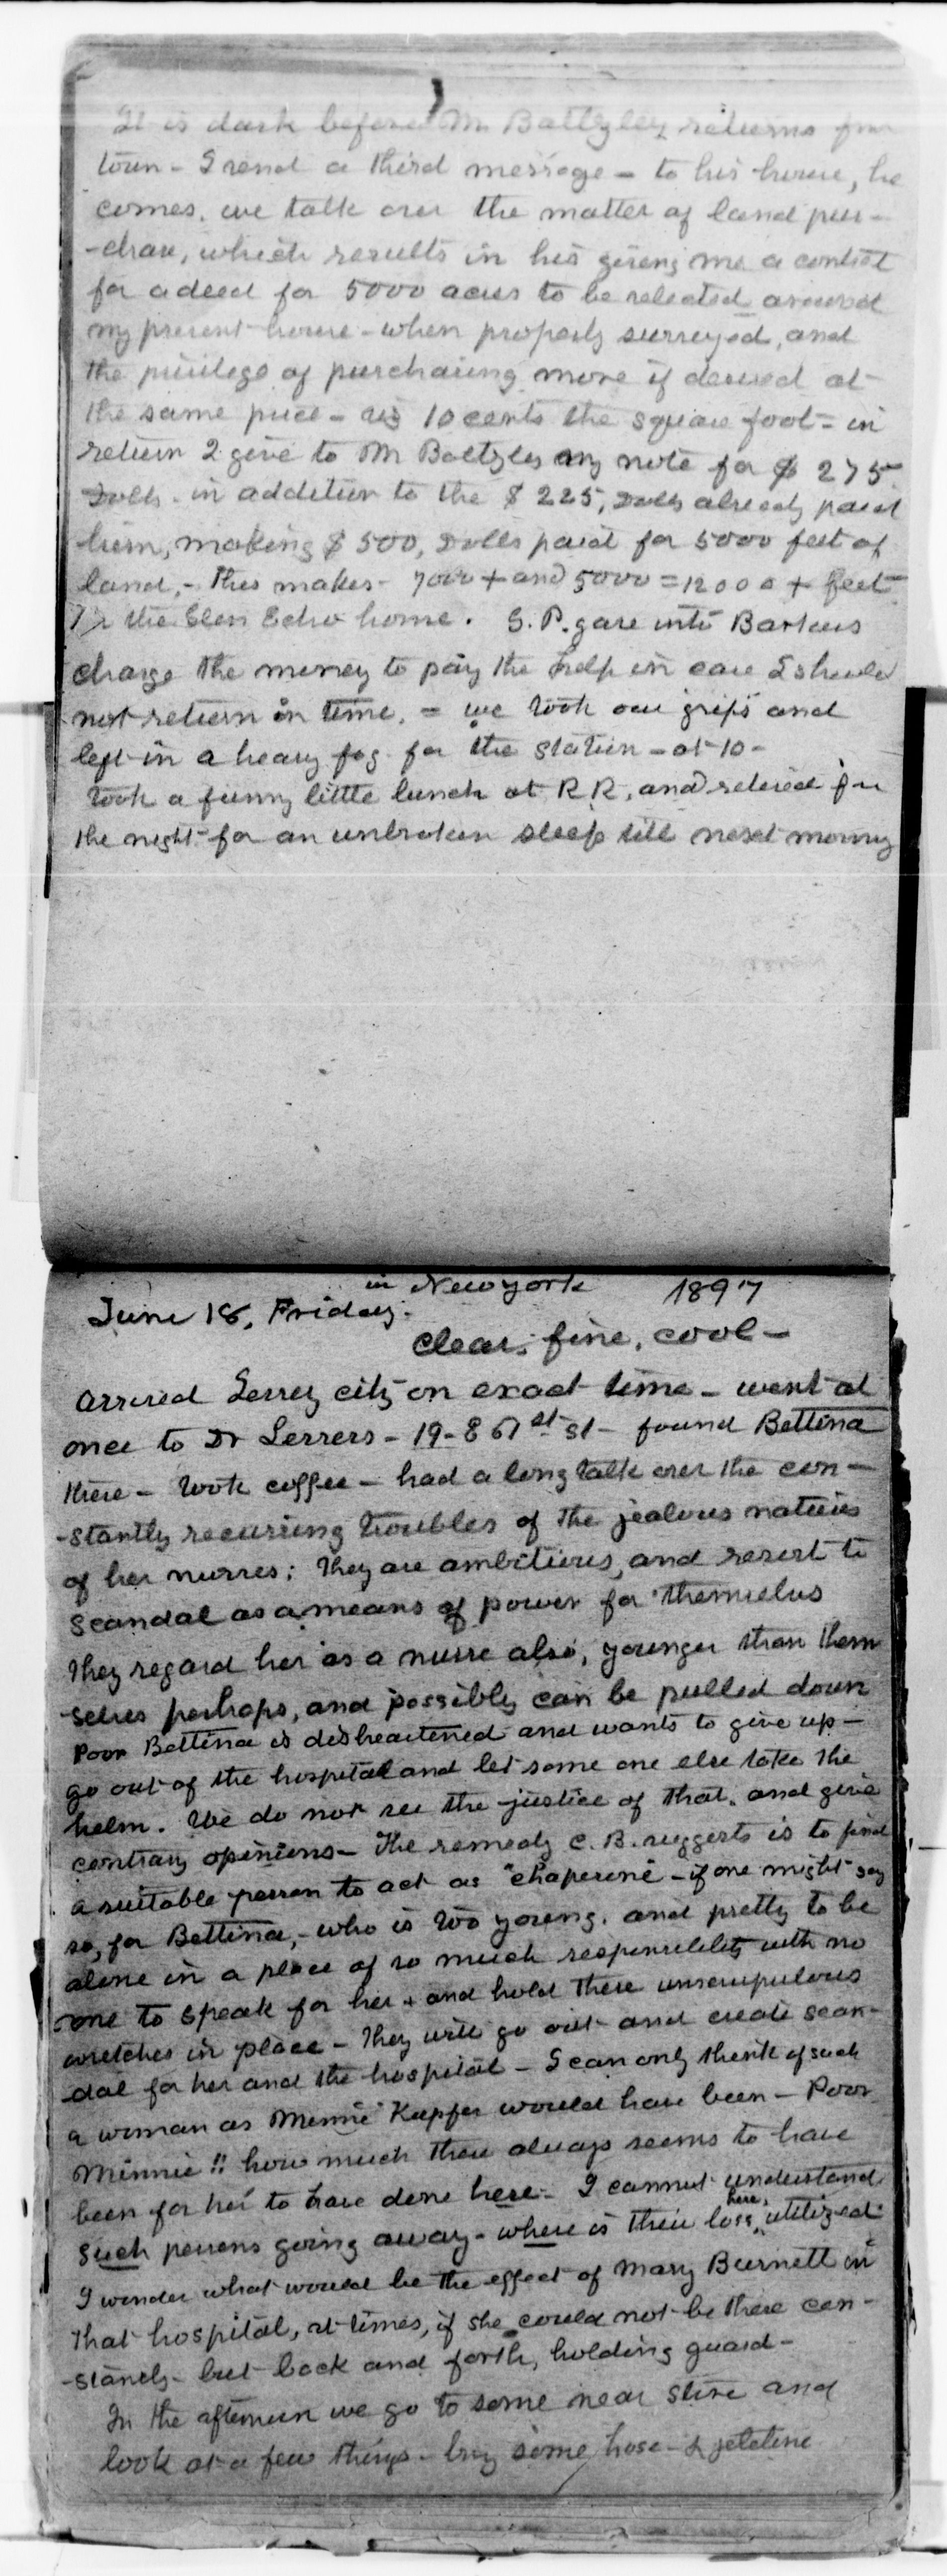 It is dark before Mr Baltzley returns from
town - I send a third message - to his house, he
comes. we talk over the matter of land pur-
-chase, which results in his giving me a contract
for a deed for 5000 acres to be selected around
my present house - when properly surveyed, and
the privilege of purchasing more if desired at
the same price - viz 10 cents the square foot - in
return I give to Mr Baltzley my note for $ 275
Dolls - in addition to the $ 225, Dolls already paid
him, making $ 500, Dolls paid for 5000 feet of
land, - this makes - 7000 + and 5000 = 12000 + feet
for the Glen Echo home. G. P. gave into Barkers
charge the money to pay the help in case I should
not return in time. - we took our grips and
left in a heavy fog for the station - at 10 -
Took a funny little lunch at R R. and retired for
the night for an unbroken sleep till next morning
in New york 1897
June 18, Friday.
Clear, fine, cool -
arrived Jersey city on exact time - went at
once to Dr Lessers - 19 - E 61st st - found Bettina
there - took coffee - had a long talk over the con -
-stantly recurring troubles of the jealous natures
of her nurses; They are ambitious, and resort to
scandal as a means of power for themselves
They regard her as a nurse also, younger than them
-selves perhaps, and possibly can be pulled down
Poor Bettina is disheartened and wants to give up -
go out of the hospital and let some one else take the
helm. We do not see the justice of that. and give
contrary opinions - The remedy C. B. suggests is to find
a suitable person to act as "chaperone - if one might say
so, for Bettina, - who is too young. and pretty to be
alone in a place of so much responsibility with no
one to speak for her + and hold these unscrupulous
wretches in place - They will go out and create scan-
-dal for her and the hospital - I can only think of such
a woman as Minnie Kupfer would have been - Poor
Minnie !! how much there always seems to have
been for her to have done here - I cannot understand
such persons going away - where is their loss here, utilized
I wonder what would be the effect of Mary Burnett in
that hospital, at times, if she could not be there con-
-stantly - but back and forth, holding guard -
In the afternoon we go to some near store and
look at a few things - buy some hose - & gelatine